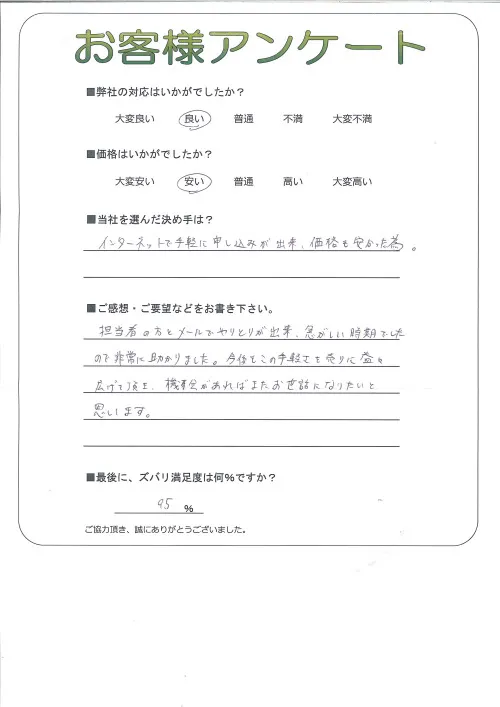 お客様アンケート
■弊社の対応はいかがでしたか？
大変良い 良い 普通 不満 大変不満
■価格はいかがでしたか？
大変安い 安い 普通 高い 大変高い
■当社を選んだ決め手は？
インターネットで手軽に申し込みが出来、価格も安かった為。
■ご感想・ご要望などをお書き下さい。
担当者の方とメールでやりとりが出来、忙がしい時期でした
ので非常に助かりました。今後もこの手軽さを売りに益々
広げて頂き、機会があればまたお世話になりたいと
思います。
■最後に、ズバリ満足度は何％ですか？
95 ％
ご協力頂き、誠にありがとうございました。